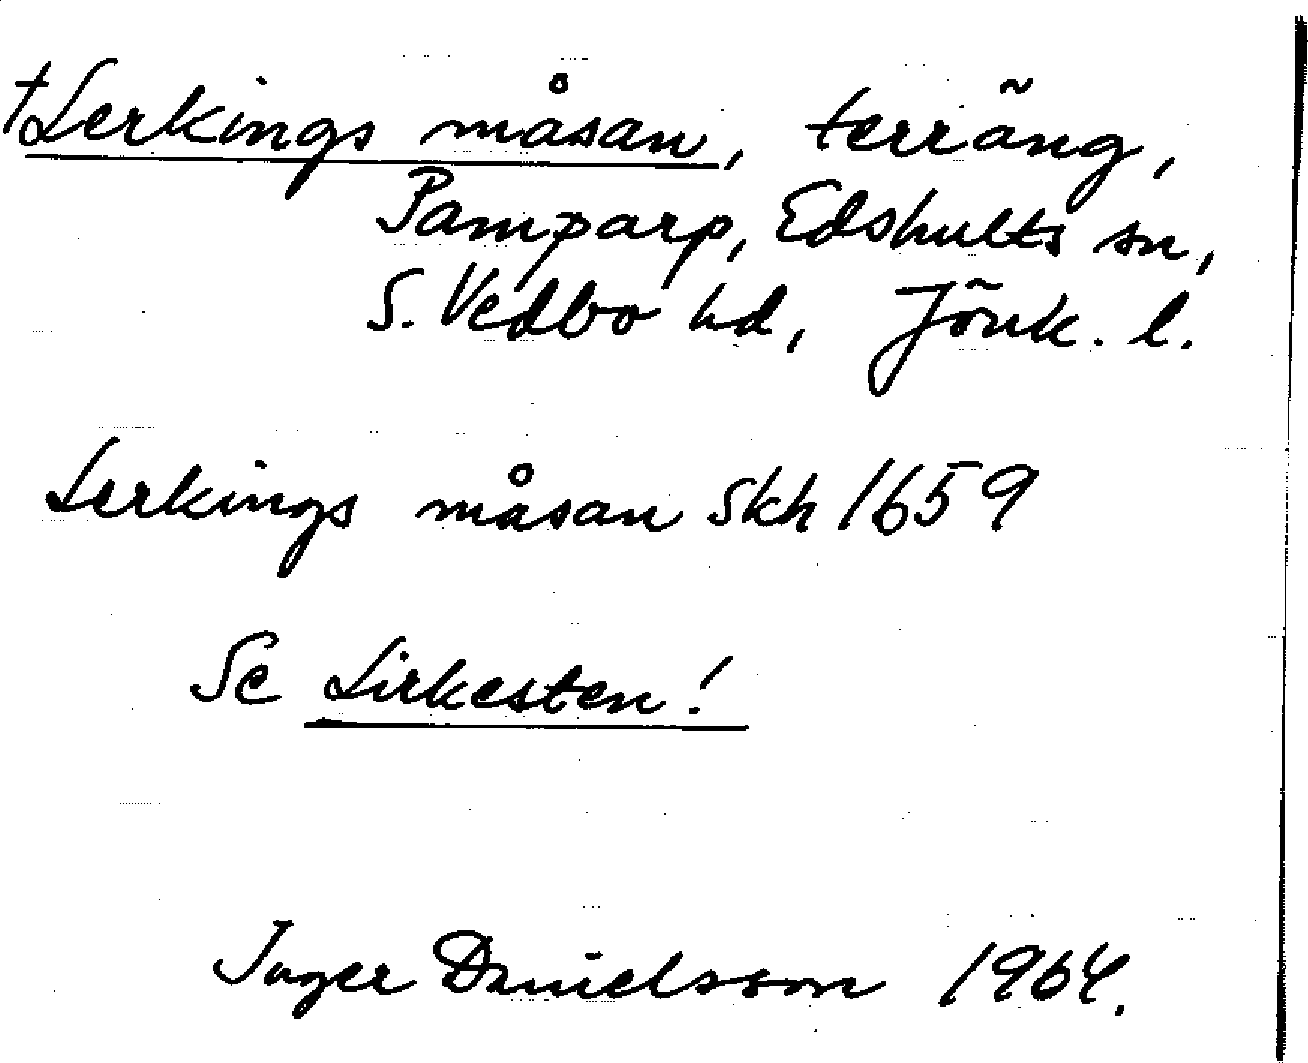 †Lerkings måsan, terräng,
Pamparp, Edshults sn,
S. Vedbo hd, Jönk. l.
Lerkings måsan Skh 1659
Se Lirkesten!
Inger Danielsson 1964.